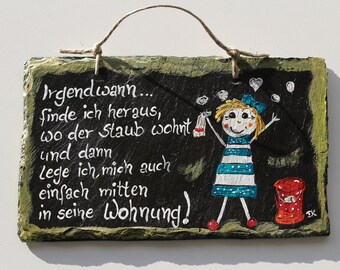 Irgendwann...
finde ich heraus,
wo der Staub wohnt
und dann
lege ich mich auch
einfach mitten
in seine Wohnung!